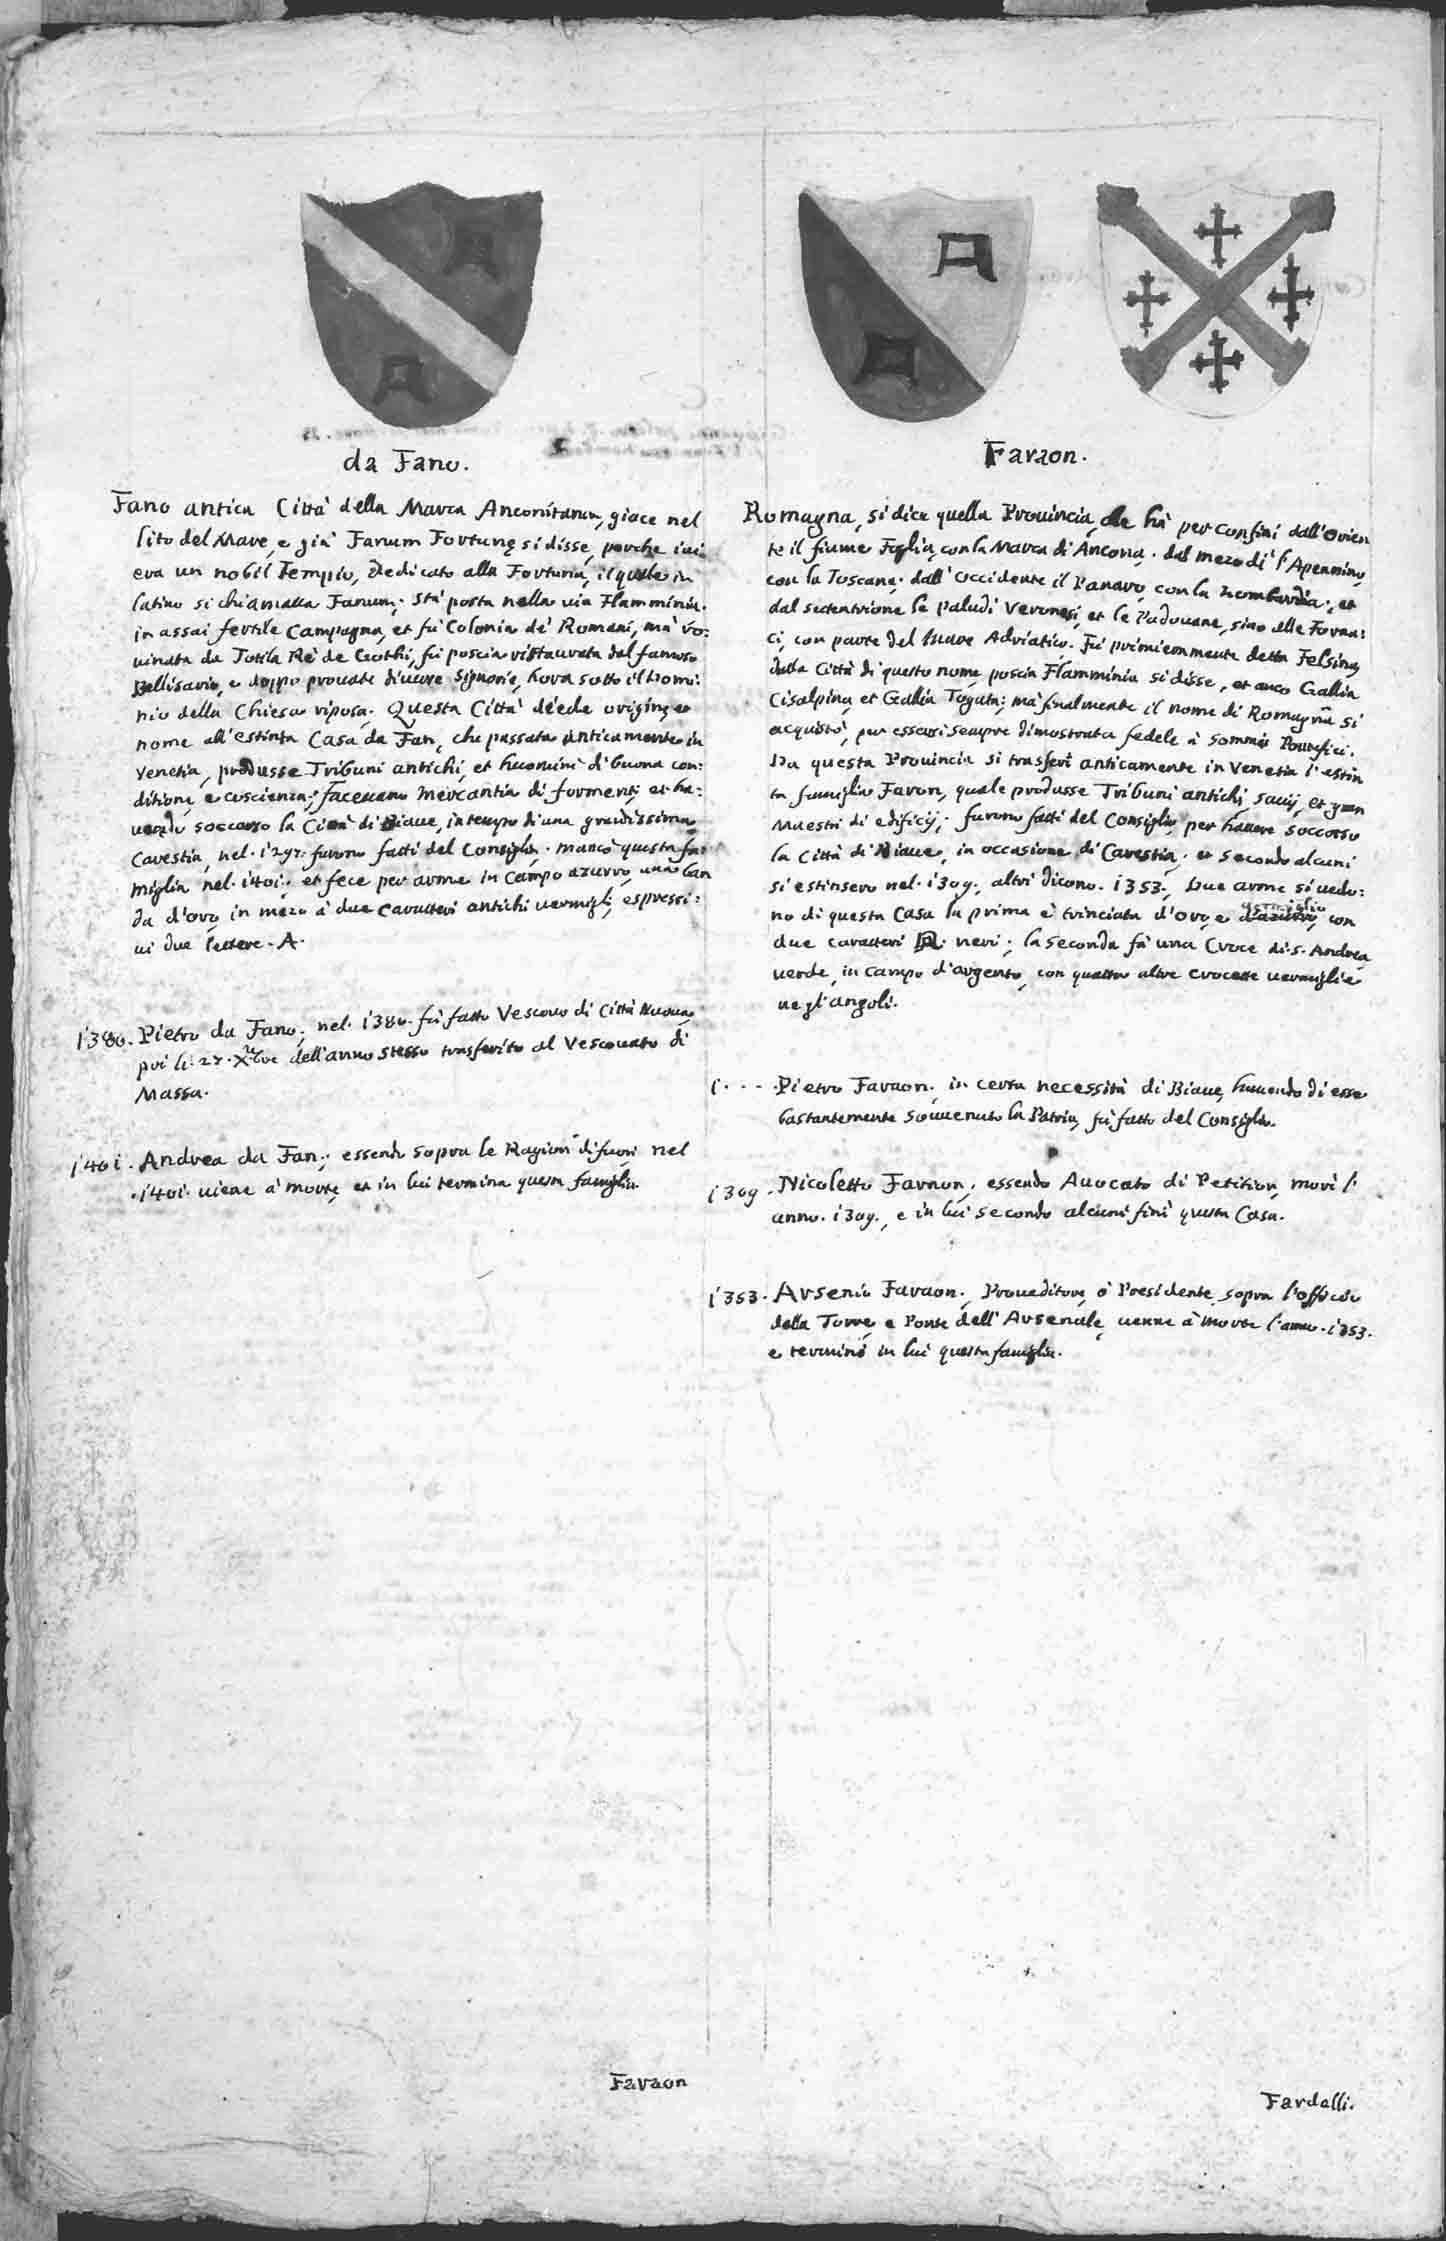 da Fano.
Fano antica Città della Marca Anconitana, giace nel
lito del Mare, e già Fanum Fortunę si disse, perche iui
era un nobil Tempio, dedicato alla Fortuna, il quale in
latino si chiamaua Fanum; stà posta nella uia Flamminia.
in assai fertile Campagna, et fù Colonia de' Romani, mà ro:
uinata da Totila Rè de Gothi, fù poscia ristaurata dal famoso
Bellisario, e doppo prouate diuerse Signorie, hora sotto il Domi:
nio della Chiesa riposa. Questa Città diede origine, et
nome all'estinta Casa da Fan, che passata anticamente in
Venetia, produsse Tribuni antichi, et huomini di buona con:
ditione, e coscienza; faceuano mercantia di formenti, et ha:
uendo soccorso la Città di Biaue, in tempo di una grandissima
Carestia, nel. 1297. furono fatti del Consiglio. mancò questa fa:
miglia nel. 1401., et fece per arme in Campo azurro, una ban
da d'oro, in mezo à due caratteri antichi uermigli, espressi:
ui due lettere. A.
1380. Pietro da Fano, nel. 1380. fù fatto Vescouo di Città Nuoua,
poi li. 27. Xbre dell'anno stesso trasferito al Vescouato di
Massa.
1401. Andrea da Fan; essendo sopra le Ragioni di fuori nel
.1401. uiene à morte, et in lui termina questa famiglia.
Faraon
Faraon.
Romagna, si dice quella Prouincia, che hà per confini dall'Orien
te il fiume Foglia, con la Marca di Ancona. dal mezo dì l'Apennino,
con la Toscana. dall'Occidente il Panaro, con la Lombardia., et
dal settentrione le paludi Veronesi, et le Padouane, sino alle Forna:
ci, con parte del Mare Adriatico. Fù primieramente detta Felsina,
dalla Città di questo nome, poscia Flamminia si disse, et anco Gallia
Cisalpina, et Gallia Togata; mà finalmente il nome di Romagna si
acquistò, per essersi sempre dimostrata fedele à Sommi Pontefici.
Da questa Prouincia si trasferì anticamente in Venetia l'estin
ta famiglia Faron, quale produsse Tribuni antichi, sauij, et gran
Maestri di edificij; furono fatti del Consiglio, per hauere soccorso
la Città di Biaue, in occasione di Carestia. et secondo alcuni
si estinsero nel. 1309., altri dicono. 1353., Due arme si uedo:
no di questa Casa la prima è trinciata d'oro, e d'azurro, con
due caratteri A. neri; la seconda fà una Croce di. S. Andrea
uerde, in campo d'argento, con quattro altre crocette uermiglie
ne gl'angoli.
1 . . . . Pietro Faraon. in certa necessità di Biaue, hauendo di esse
bastantemente souuenuto la Patria, fù fatto del Consiglio.
1309. Nicoletto Faraon; essendo Auocato di Petition, morì l'
anno. 1309., e in lui secondo alcuni finì questa Casa.
1353. Arsenio Faraon., Proueditore, ò Presidente sopra l'officio
della Torre, e Ponte dell'Arsenale, uenne à morte l'anno. 1353.
e terminò in lui questa famiglia.
Fardelli.